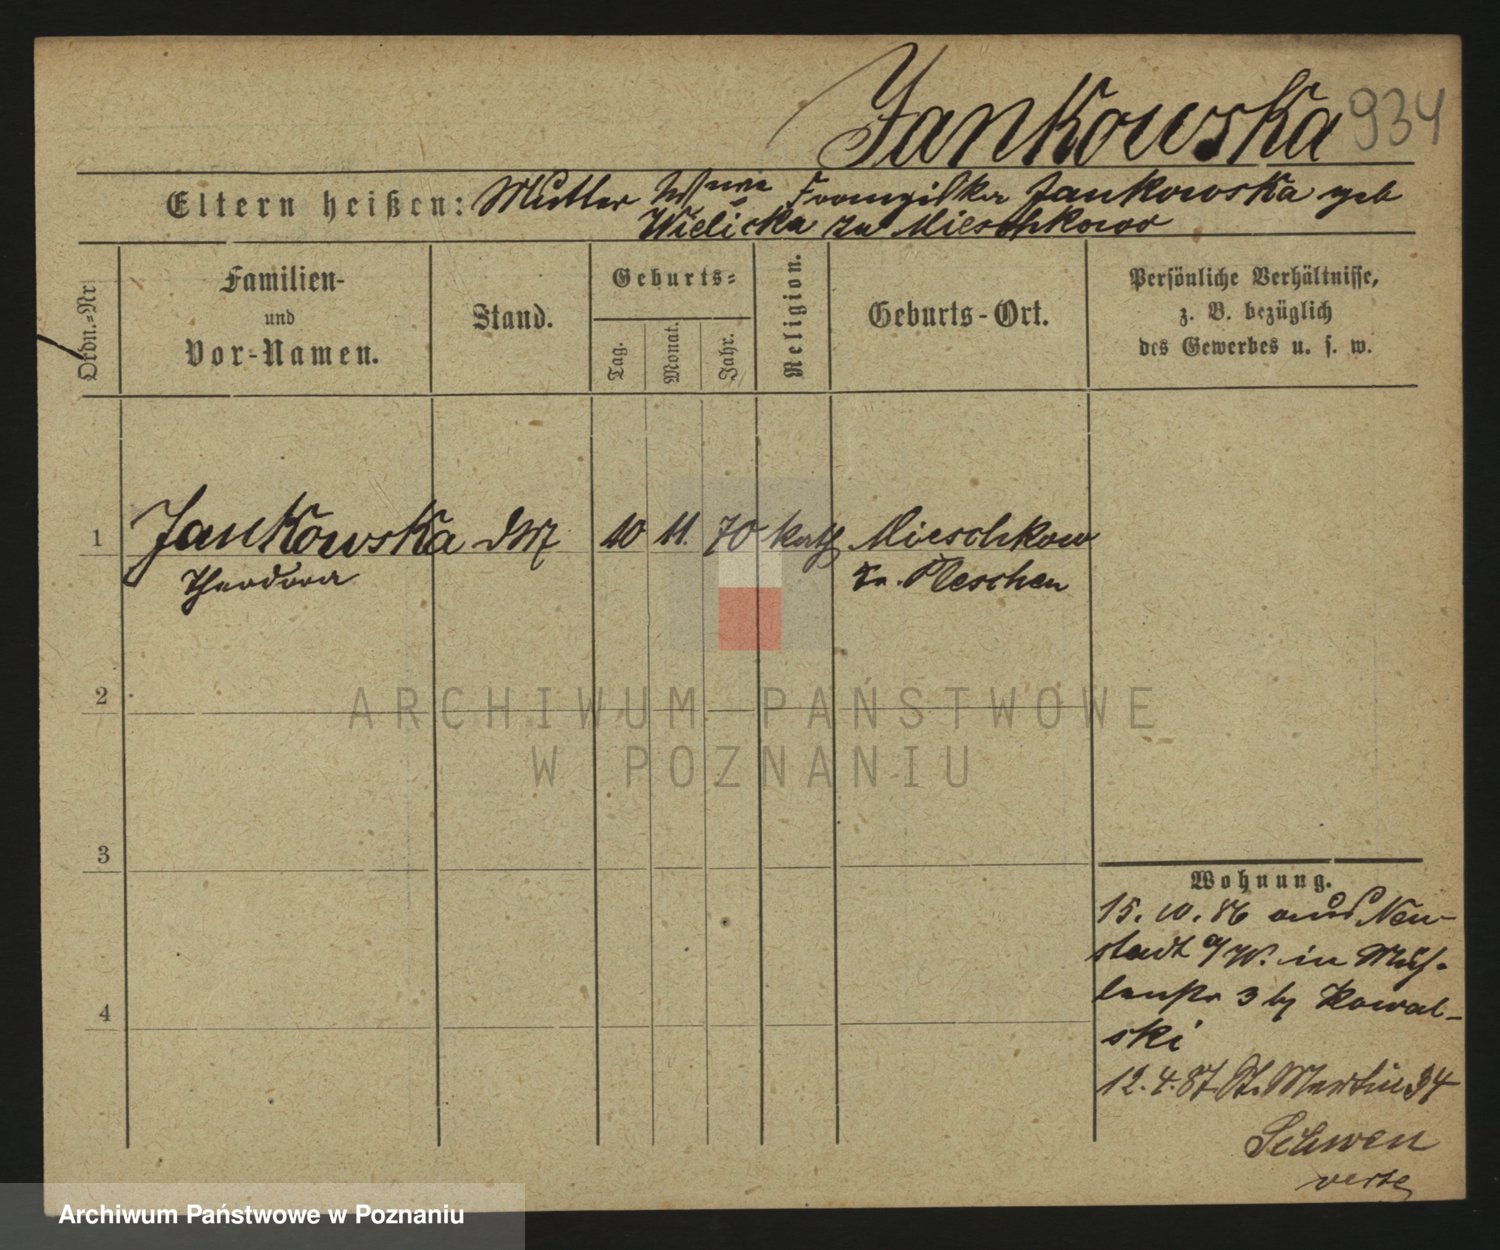 Jankowska 934
Eltern heißen: Mutter Wwe Franziska Jankowska geb
Wielicka zu Mieschkow
Ordn.-Nr.
Familien-
und
Vor-Namen.
Stand.
Geburts-
Tag.
Monat.
Jahr.
Religion.
Geburts-Ort.
Persönliche Verhältnisse,
z. B. bezüglich
des Gewerbes u. s. w.
1 Jankowska 10 11. 70 kath Mieschkow
Theodora Kr. Pleschen
2
3
4
Wohnung.
15. 10. 86 aus Neu-
stadt a/W. in Müh-
lenstr 3 by Kowal-
ski
12. 4. 87. St. Martin 34
ARCHIWUM PAŃSTWOWE
W POZNANIU
Archiwum Państwowe w Poznaniu